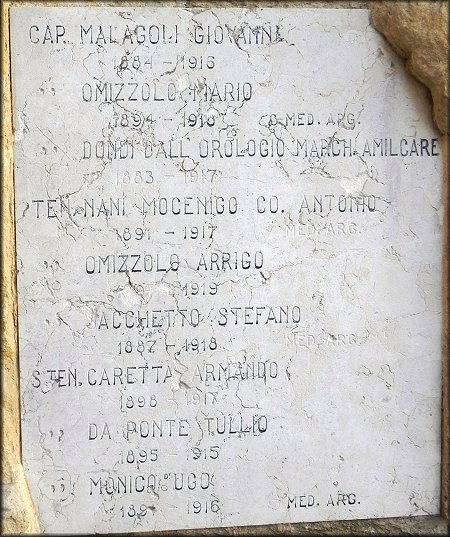 CAP. MALAGOLI GIOVANNI
1884 - 1916
" OMIZZOLO MARIO
1894 - 1918 MED. ARG.
" DONDI DALL'OROLOGIO MARCH. AMILCARE
1883 - 1917
TEN. NANI MOCENIGO CO. ANTONIO
1891 - 1917 MED. ARG.
" OMIZZOLO ARRIGO
1919
" SACCHETTO STEFANO
1887 - 1918 MED. ARG.
S.TEN. CARETTA ARMANDO
1898 - 1917
" DA PONTE TULLIO
1895 - 1915
" MONICO UGO
1916 MED. ARG.